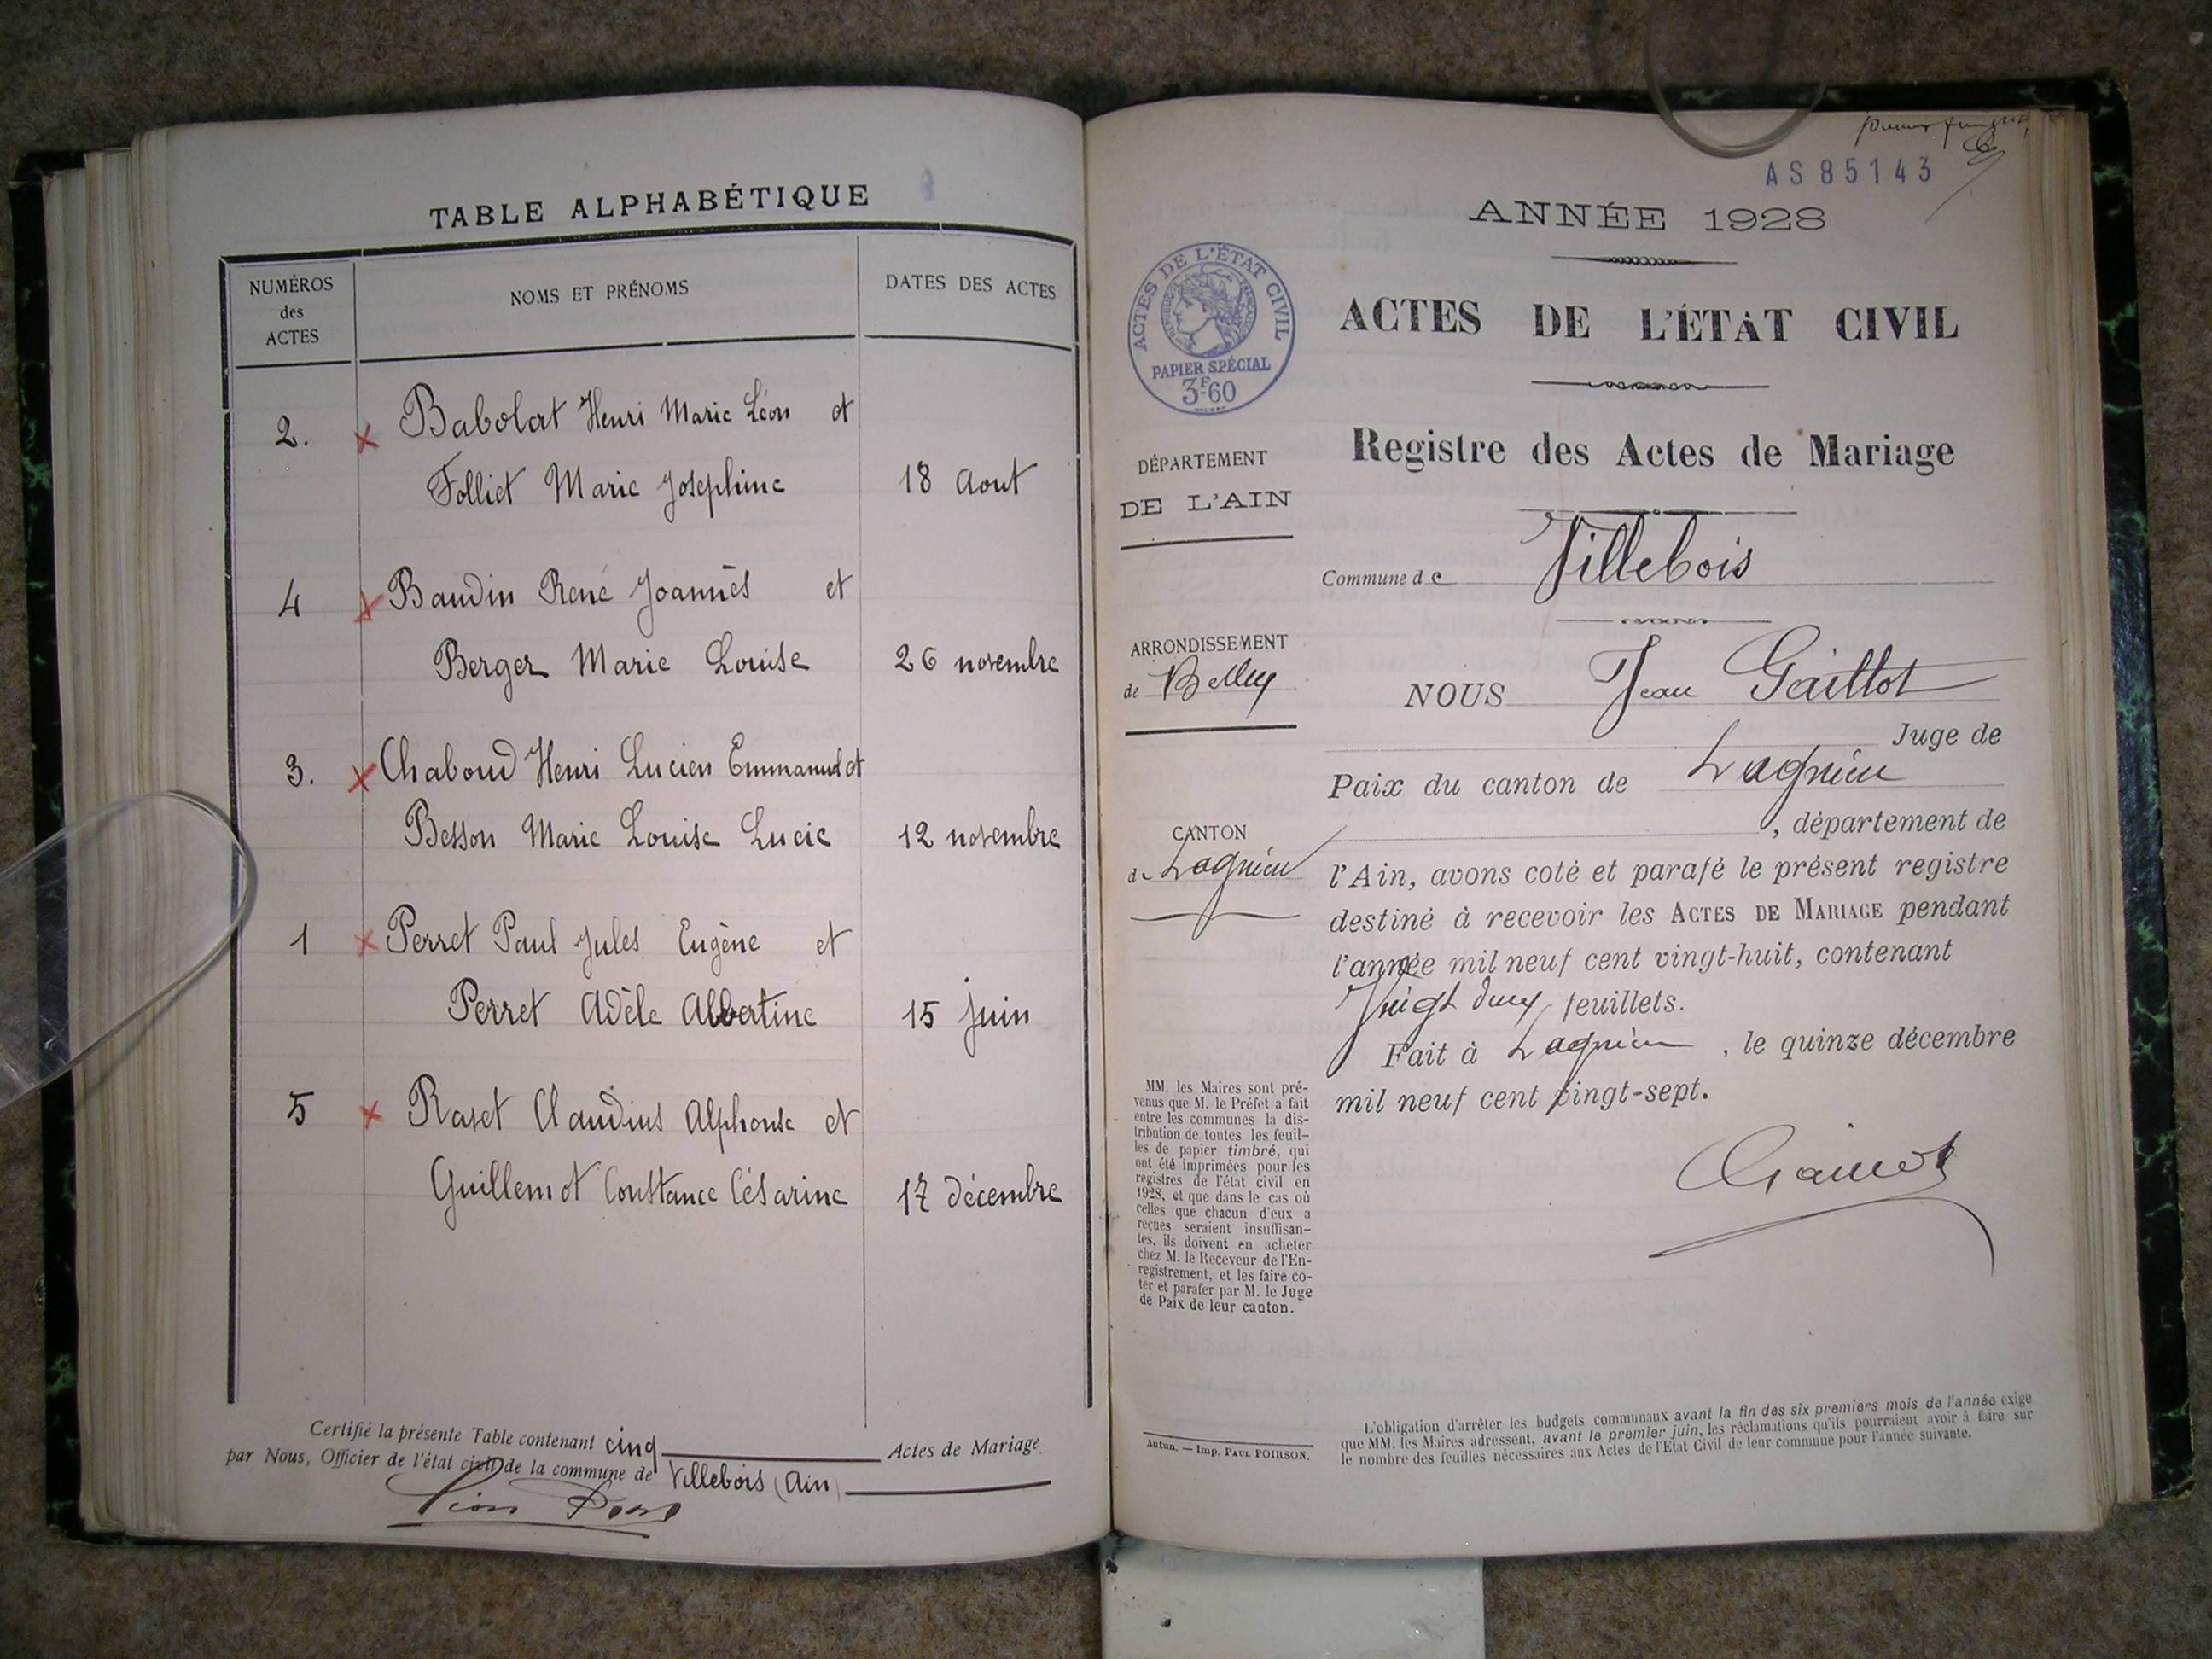 TABLE ALPHABÉTIQUE
NUMÉROS
des
ACTES
NOMS ET PRÉNOMS
DATES DES ACTES
2. Babolat Henri Marie Léon et
Folliet Marie Josephine 18 Aout
4 Baudin René Joannès et
Berger Marie Louise 26 novembre
3. Chaboud Henri Lucien Emmanuel et
Besson Marie Louise Lucie 12 novembre
1 Perret Paul Jules Eugène et
Perret Adèle Albertine 15 juin
5 Ravet Claudius Alphonse et
Guillemot Constance Césarine 17 décembre
Certifié la présente Table contenant cinq Actes de Mariage
par Nous, Officier de l'état civil de la commune de Villebois (Ain)
AS85143
ANNÉE 1928
ACTES DE L'ÉTAT CIVIL
Registre des Actes de Mariage
ACTES DE L'ÉTAT CIVIL
RÉPUBLIQUE FRANÇAISE
PAPIER SPÉCIAL
3F60
DÉPARTEMENT
DE L'AIN
ARRONDISSEMENT
de Belley
CANTON
de Lagnieu
MM. les Maires sont pré-
venus que M. le Préfet a fait
entre les communes la dis-
tribution de toutes les feuil-
les de papier timbré, qui
ont été imprimées pour les
registres de l'état civil en
1928, et que dans le cas où
celles que chacun d'eux a
reçues seraient insuffisan-
tes, ils doivent en acheter
chez M. le Receveur de l'En-
registrement, et les faire co-
ter et parafer par M. le Juge
de Paix de leur canton.
Autun. — Imp. PAUL POIRSON.
Commune de Villebois
NOUS Jean Gaillot
Juge de
Paix du canton de Lagnieu
, département de
l'Ain, avons coté et parafé le présent registre
destiné à recevoir les ACTES DE MARIAGE pendant
l'année mil neuf cent vingt-huit, contenant
Vingt deux feuillets.
Fait à Lagnieu, le quinze décembre
mil neuf cent vingt-sept.
L'obligation d'arrêter les budgets communaux avant la fin des six premiers mois de l'année exige
que MM. les Maires adressent, avant le premier juin, les réclamations qu'ils pourraient avoir à faire sur
le nombre des feuilles nécessaires aux Actes de l'Etat Civil de leur commune pour l'année suivante.